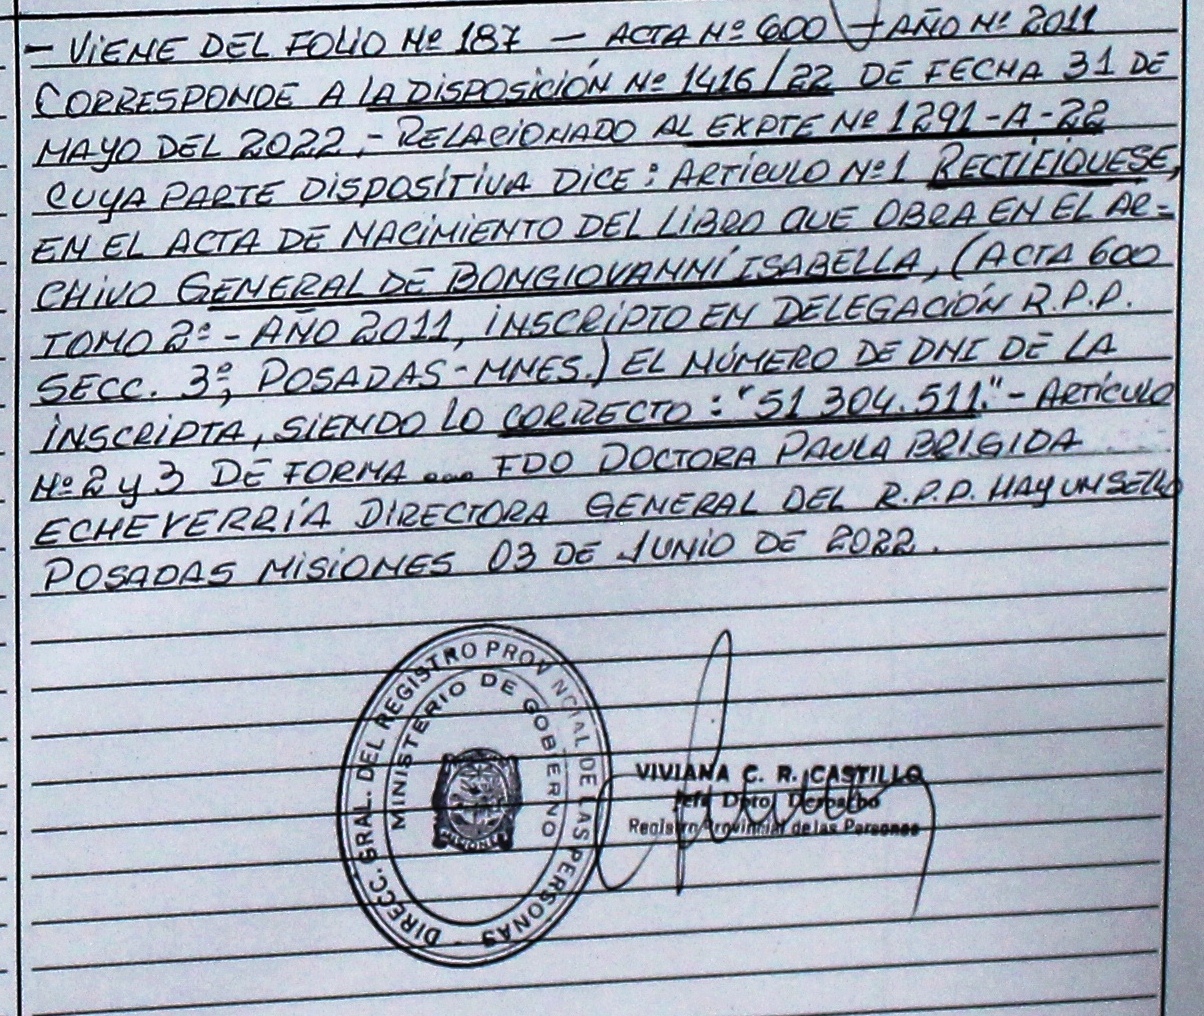 - VIENE DEL FOLIO Nº 187 - ACTA Nº 600 - AÑO Nº 2011
CORRESPONDE A LA DISPOSICIÓN Nº 1416/22 DE FECHA 31 DE
MAYO DEL 2022.- RELACIONADO AL EXPTE Nº 1291-A-22
CUYA PARTE DISPOSITIVA DICE: ARTÍCULO Nº1 RECTIFIQUESE,
EN EL ACTA DE NACIMIENTO DEL LIBRO QUE OBRA EN EL AR=
CHIVO GENERAL DE BONGIOVANNI ISABELLA, (ACTA 600
TOMO 2º - AÑO 2011, INSCRIPTO EN DELEGACIÓN R.P.P.
SECC. 3º, POSADAS-MNES.) EL NÚMERO DE DNI DE LA
INSCRIPTA, SIENDO LO CORRECTO: "51 304.511."- ARTÍCULO
Nº 2 y 3 DE FORMA ... FDO DOCTORA PAULA BRIGIDA
ECHEVERRÍA DIRECTORA GENERAL DEL R.P.P. HAY UN SELLO
POSADAS MISIONES 03 DE JUNIO DE 2022.
DIRECC. GRAL. DEL REGISTRO PROVINCIAL DE LAS PERSONAS -
MINISTERIO DE GOBIERNO
VIVIANA C. R. CASTILLO
Jefe Dpto. Despacho
Registro Provincial de las Personas